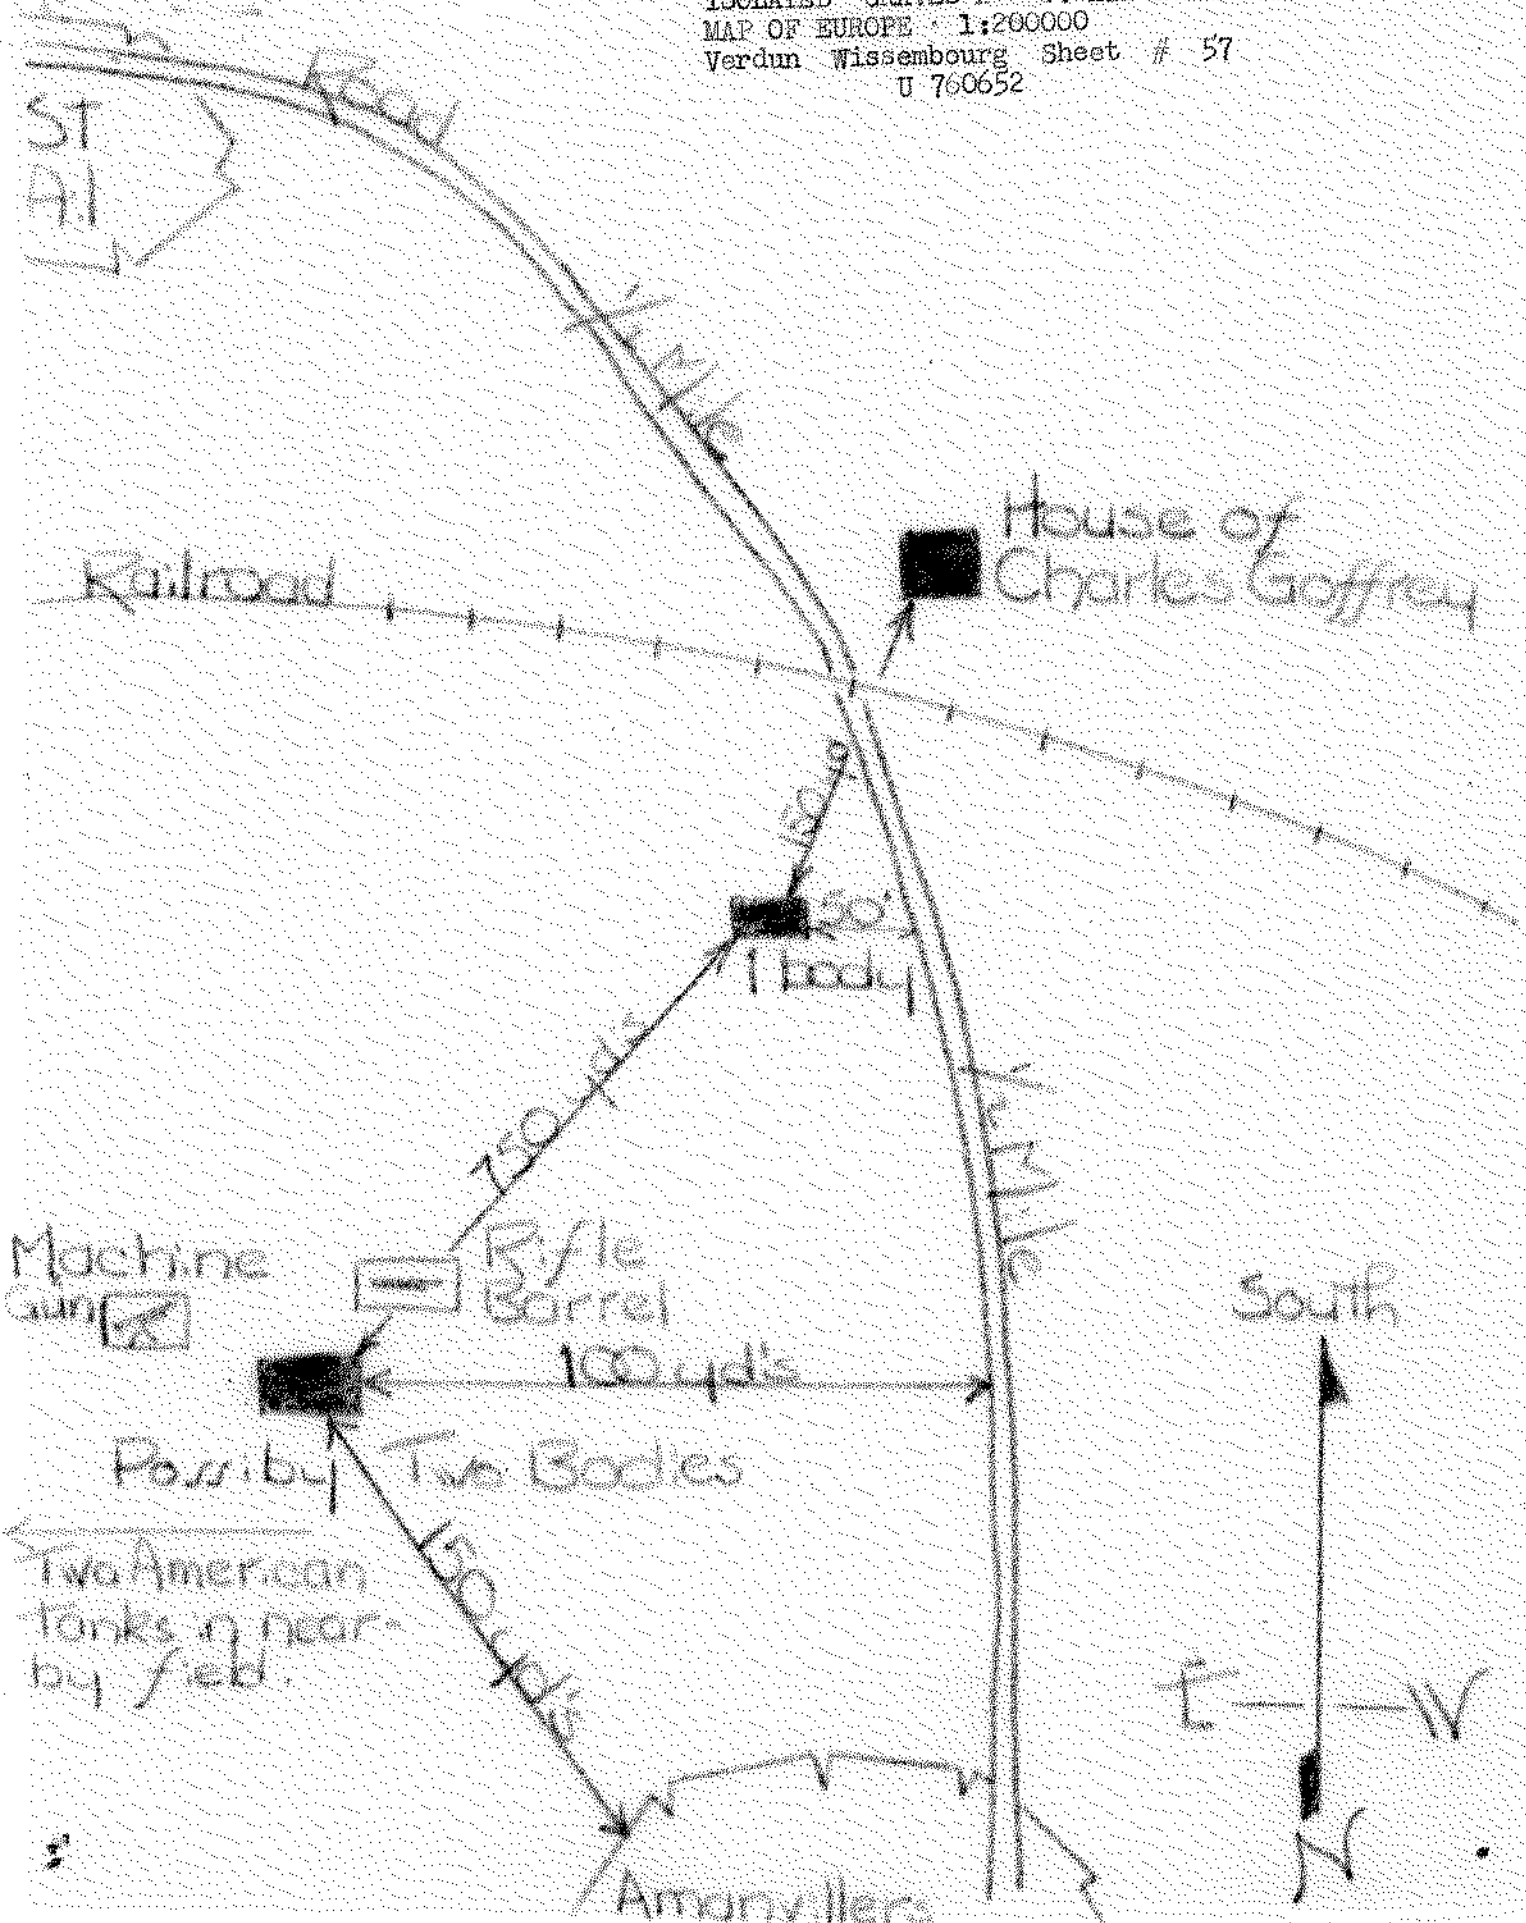 MAP OF EUROPE 1:200000
Verdun Wissembourg Sheet # 57
U 760652
Road
ST
A.I
½ Mile
House of
Charles Goffrey
Railroad
150
50'
1 body
½ Mile
750 yds
Machine
Gun
Rifle
Barrel
100 yd's
South
Possiby Two Bodies
Two American
tanks in near-
by field.
150 yd's
E W
N
Amanvillers